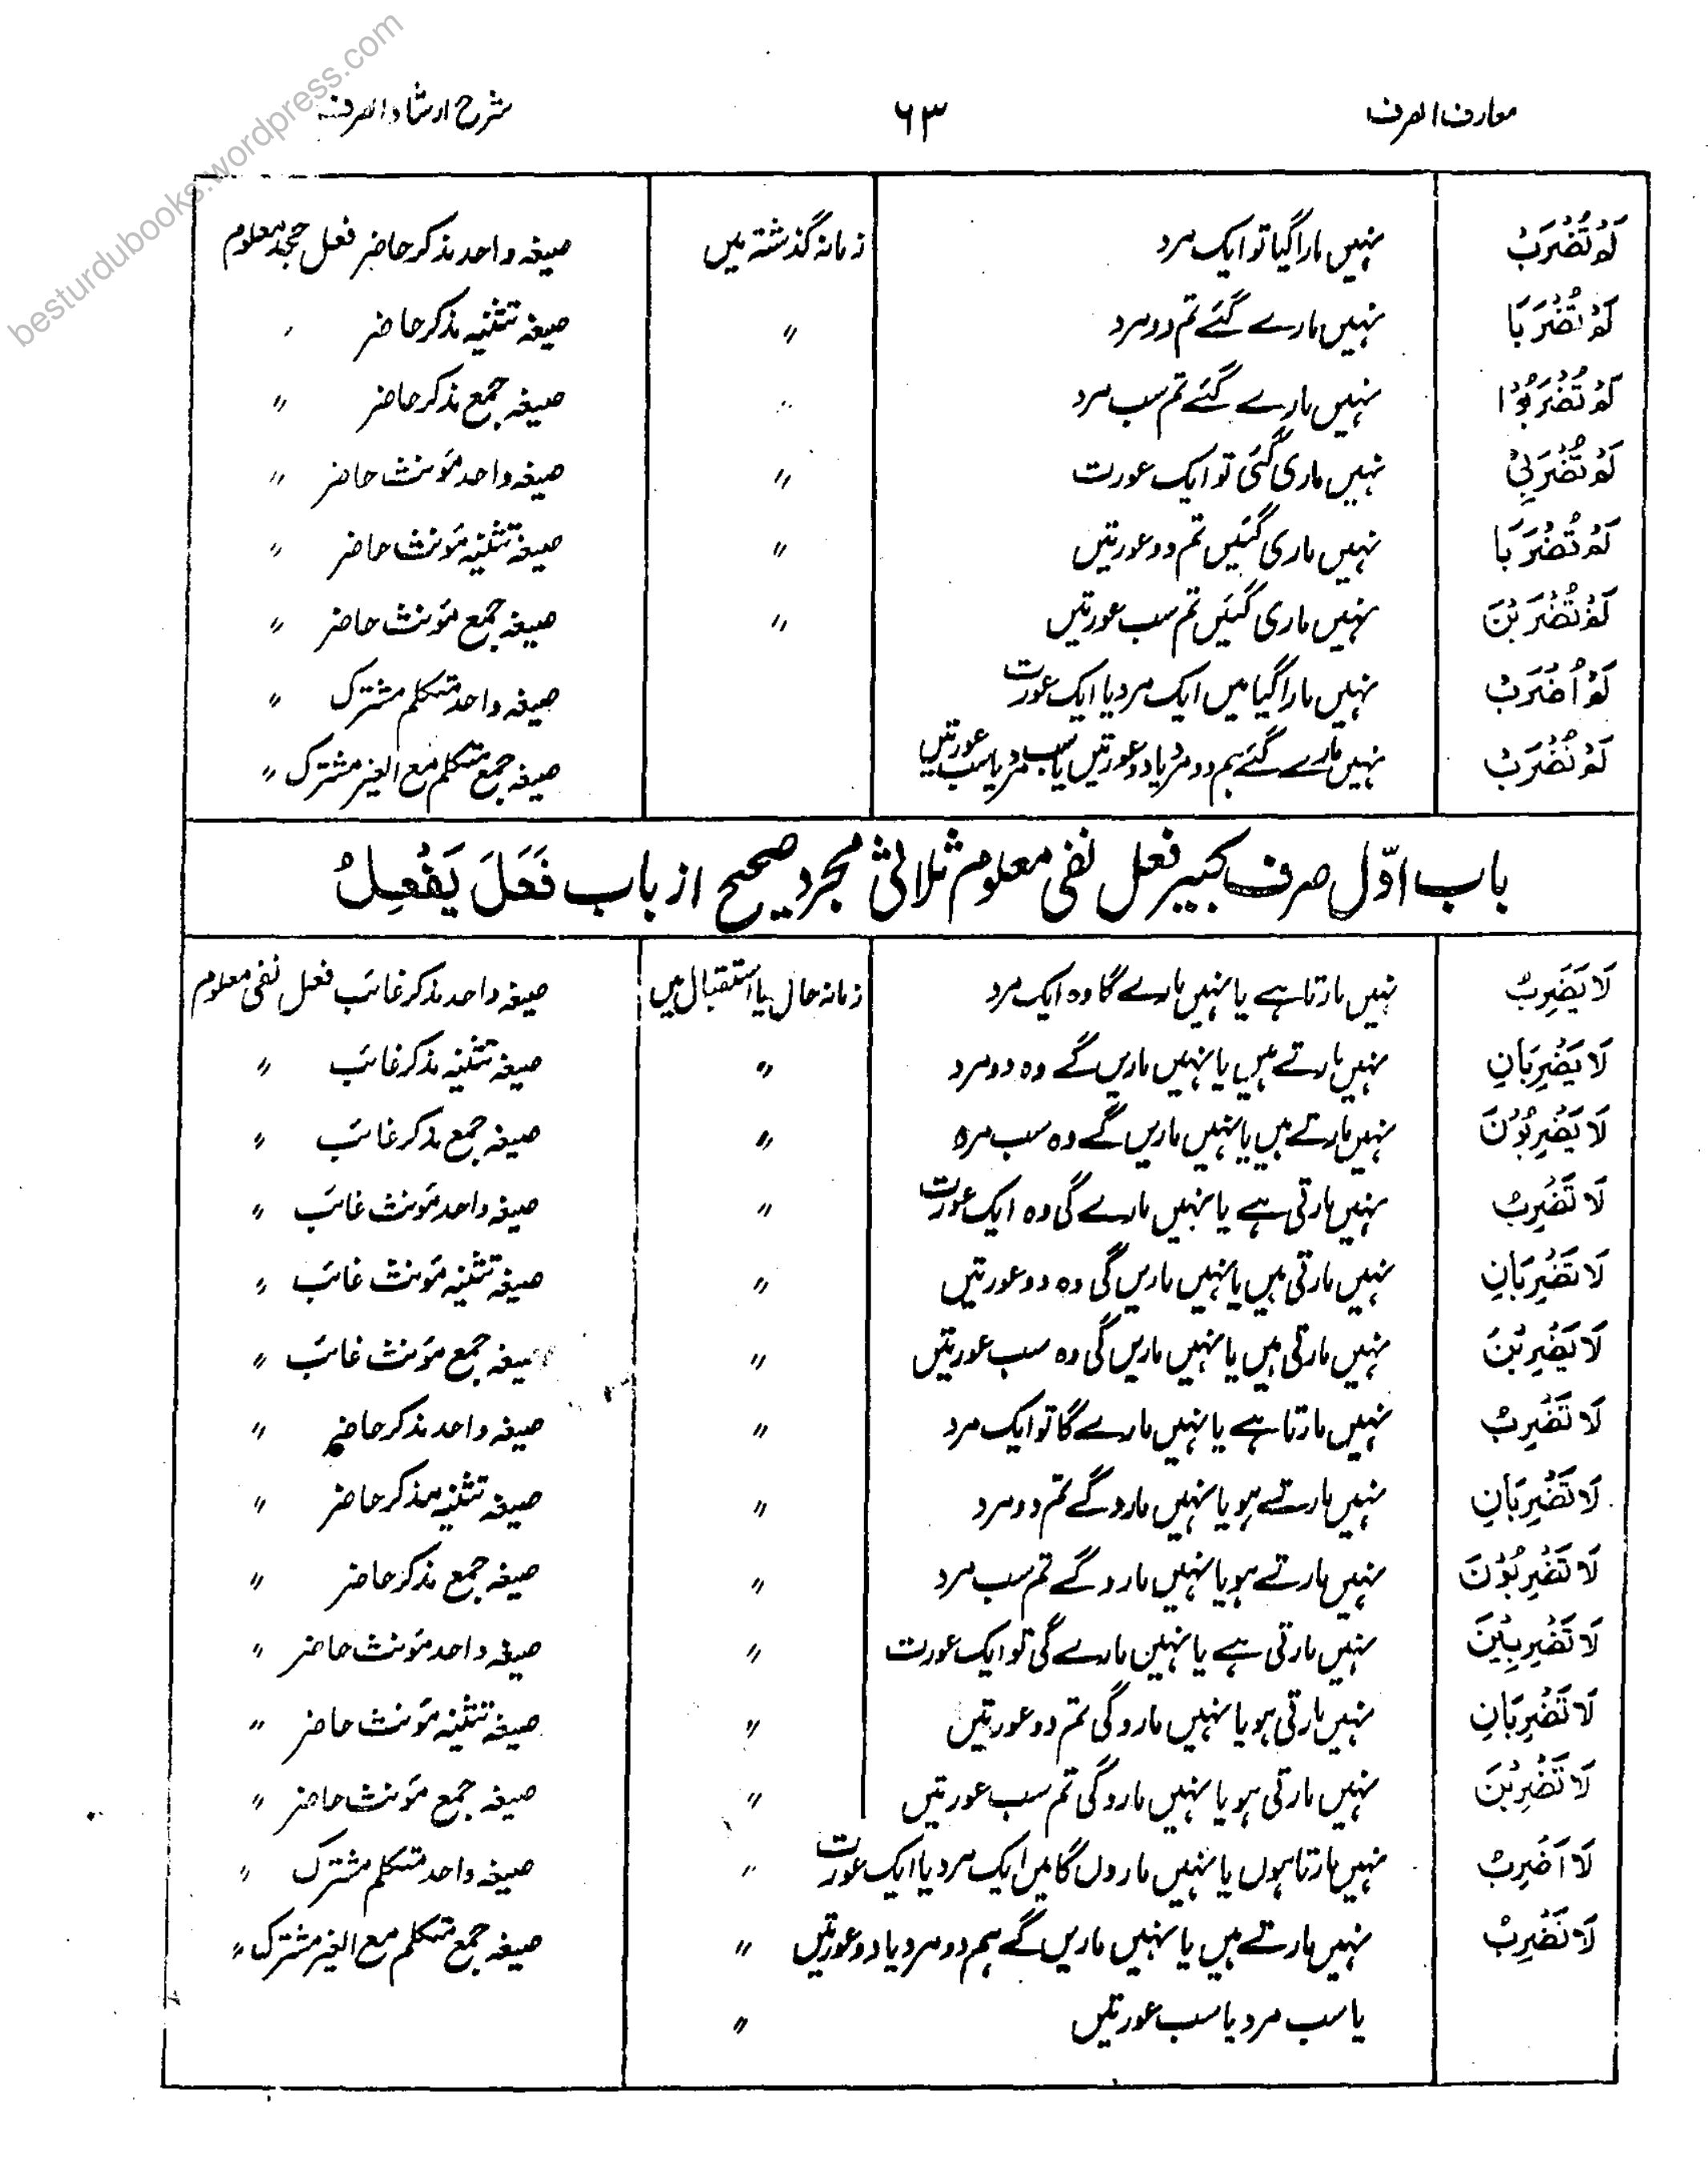 معارف الصرف ۶۳ شرح ارشاد الصرف
لَمْ تُضْرَبْ نہیں مارا گیا تو ایک مرد زمانہ گذشتہ میں صیغہ واحد مذکر حاضر فعل جحد معلوم
لَمْ تُضْرَبَا نہیں مارے گئے تم دو مرد 〃 صیغہ تثنیہ مذکر حاضر 〃
لَمْ تُضْرَبُوْا نہیں مارے گئے تم سب مرد 〃 صیغہ جمع مذکر حاضر 〃
لَمْ تُضْرَبِیْ نہیں ماری گئی تو ایک عورت 〃 صیغہ واحد مؤنث حاضر 〃
لَمْ تُضْرَبَا نہیں ماری گئیں تم دو عورتیں 〃 صیغہ تثنیہ مؤنث حاضر 〃
لَمْ تُضْرَبْنَ نہیں ماری گئیں تم سب عورتیں 〃 صیغہ جمع مؤنث حاضر 〃
لَمْ اُضْرَبْ نہیں مارا گیا میں ایک مرد یا ایک عورت صیغہ واحد متکلم مشترک 〃
لَمْ نُضْرَبْ نہیں مارے گئے ہم دو مرد یا دو عورتیں یا سب مرد یا سب عورتیں صیغہ جمع متکلم مع الغیر مشترک 〃
باب اوّل صرف کبیر فعل نفی معلوم ثلاثی مجرد صحیح از باب فَعَلَ یَفْعِلُ
لَا یَضْرِبُ نہیں مارتا ہے یا نہیں مارے گا وہ ایک مرد زمانہ حال یا استقبال میں صیغہ واحد مذکر غائب فعل نفی معلوم
لَا یَضْرِبَانِ نہیں مارتے ہیں یا نہیں ماریں گے وہ دو مرد 〃 صیغہ تثنیہ مذکر غائب 〃
لَا یَضْرِبُوْنَ نہیں مارتے ہیں یا نہیں ماریں گے وہ سب مرد 〃 صیغہ جمع مذکر غائب 〃
لَا تَضْرِبُ نہیں مارتی ہے یا نہیں مارے گی وہ ایک عورت 〃 صیغہ واحد مؤنث غائب 〃
لَا تَضْرِبَانِ نہیں مارتی ہیں یا نہیں ماریں گی وہ دو عورتیں 〃 صیغہ تثنیہ مؤنث غائب 〃
لَا یَضْرِبْنَ نہیں مارتی ہیں یا نہیں ماریں گی وہ سب عورتیں 〃 صیغہ جمع مؤنث غائب 〃
لَا تَضْرِبُ نہیں مارتا ہے یا نہیں مارے گا تو ایک مرد 〃 صیغہ واحد مذکر حاضر 〃
لَا تَضْرِبَانِ نہیں مارتے ہو یا نہیں مارو گے تم دو مرد 〃 صیغہ تثنیہ مذکر حاضر 〃
لَا تَضْرِبُوْنَ نہیں مارتے ہو یا نہیں مارو گے تم سب مرد 〃 صیغہ جمع مذکر حاضر 〃
لَا تَضْرِبِیْنَ نہیں مارتی ہے یا نہیں مارے گی تو ایک عورت 〃 صیغہ واحد مؤنث حاضر 〃
لَا تَضْرِبَانِ نہیں مارتی ہو یا نہیں مارو گی تم دو عورتیں 〃 صیغہ تثنیہ مؤنث حاضر 〃
لَا تَضْرِبْنَ نہیں مارتی ہو یا نہیں مارو گی تم سب عورتیں 〃 صیغہ جمع مؤنث حاضر 〃
لَا اَضْرِبُ نہیں مارتا ہوں یا نہیں ماروں گا میں ایک مرد یا ایک عورت 〃 صیغہ واحد متکلم مشترک 〃
لَا نَضْرِبُ نہیں مارتے ہیں یا نہیں ماریں گے ہم دو مرد یا دو عورتیں 〃 صیغہ جمع متکلم مع الغیر مشترک 〃
یا سب مرد یا سب عورتیں 〃
besturdubooks.wordpress.com